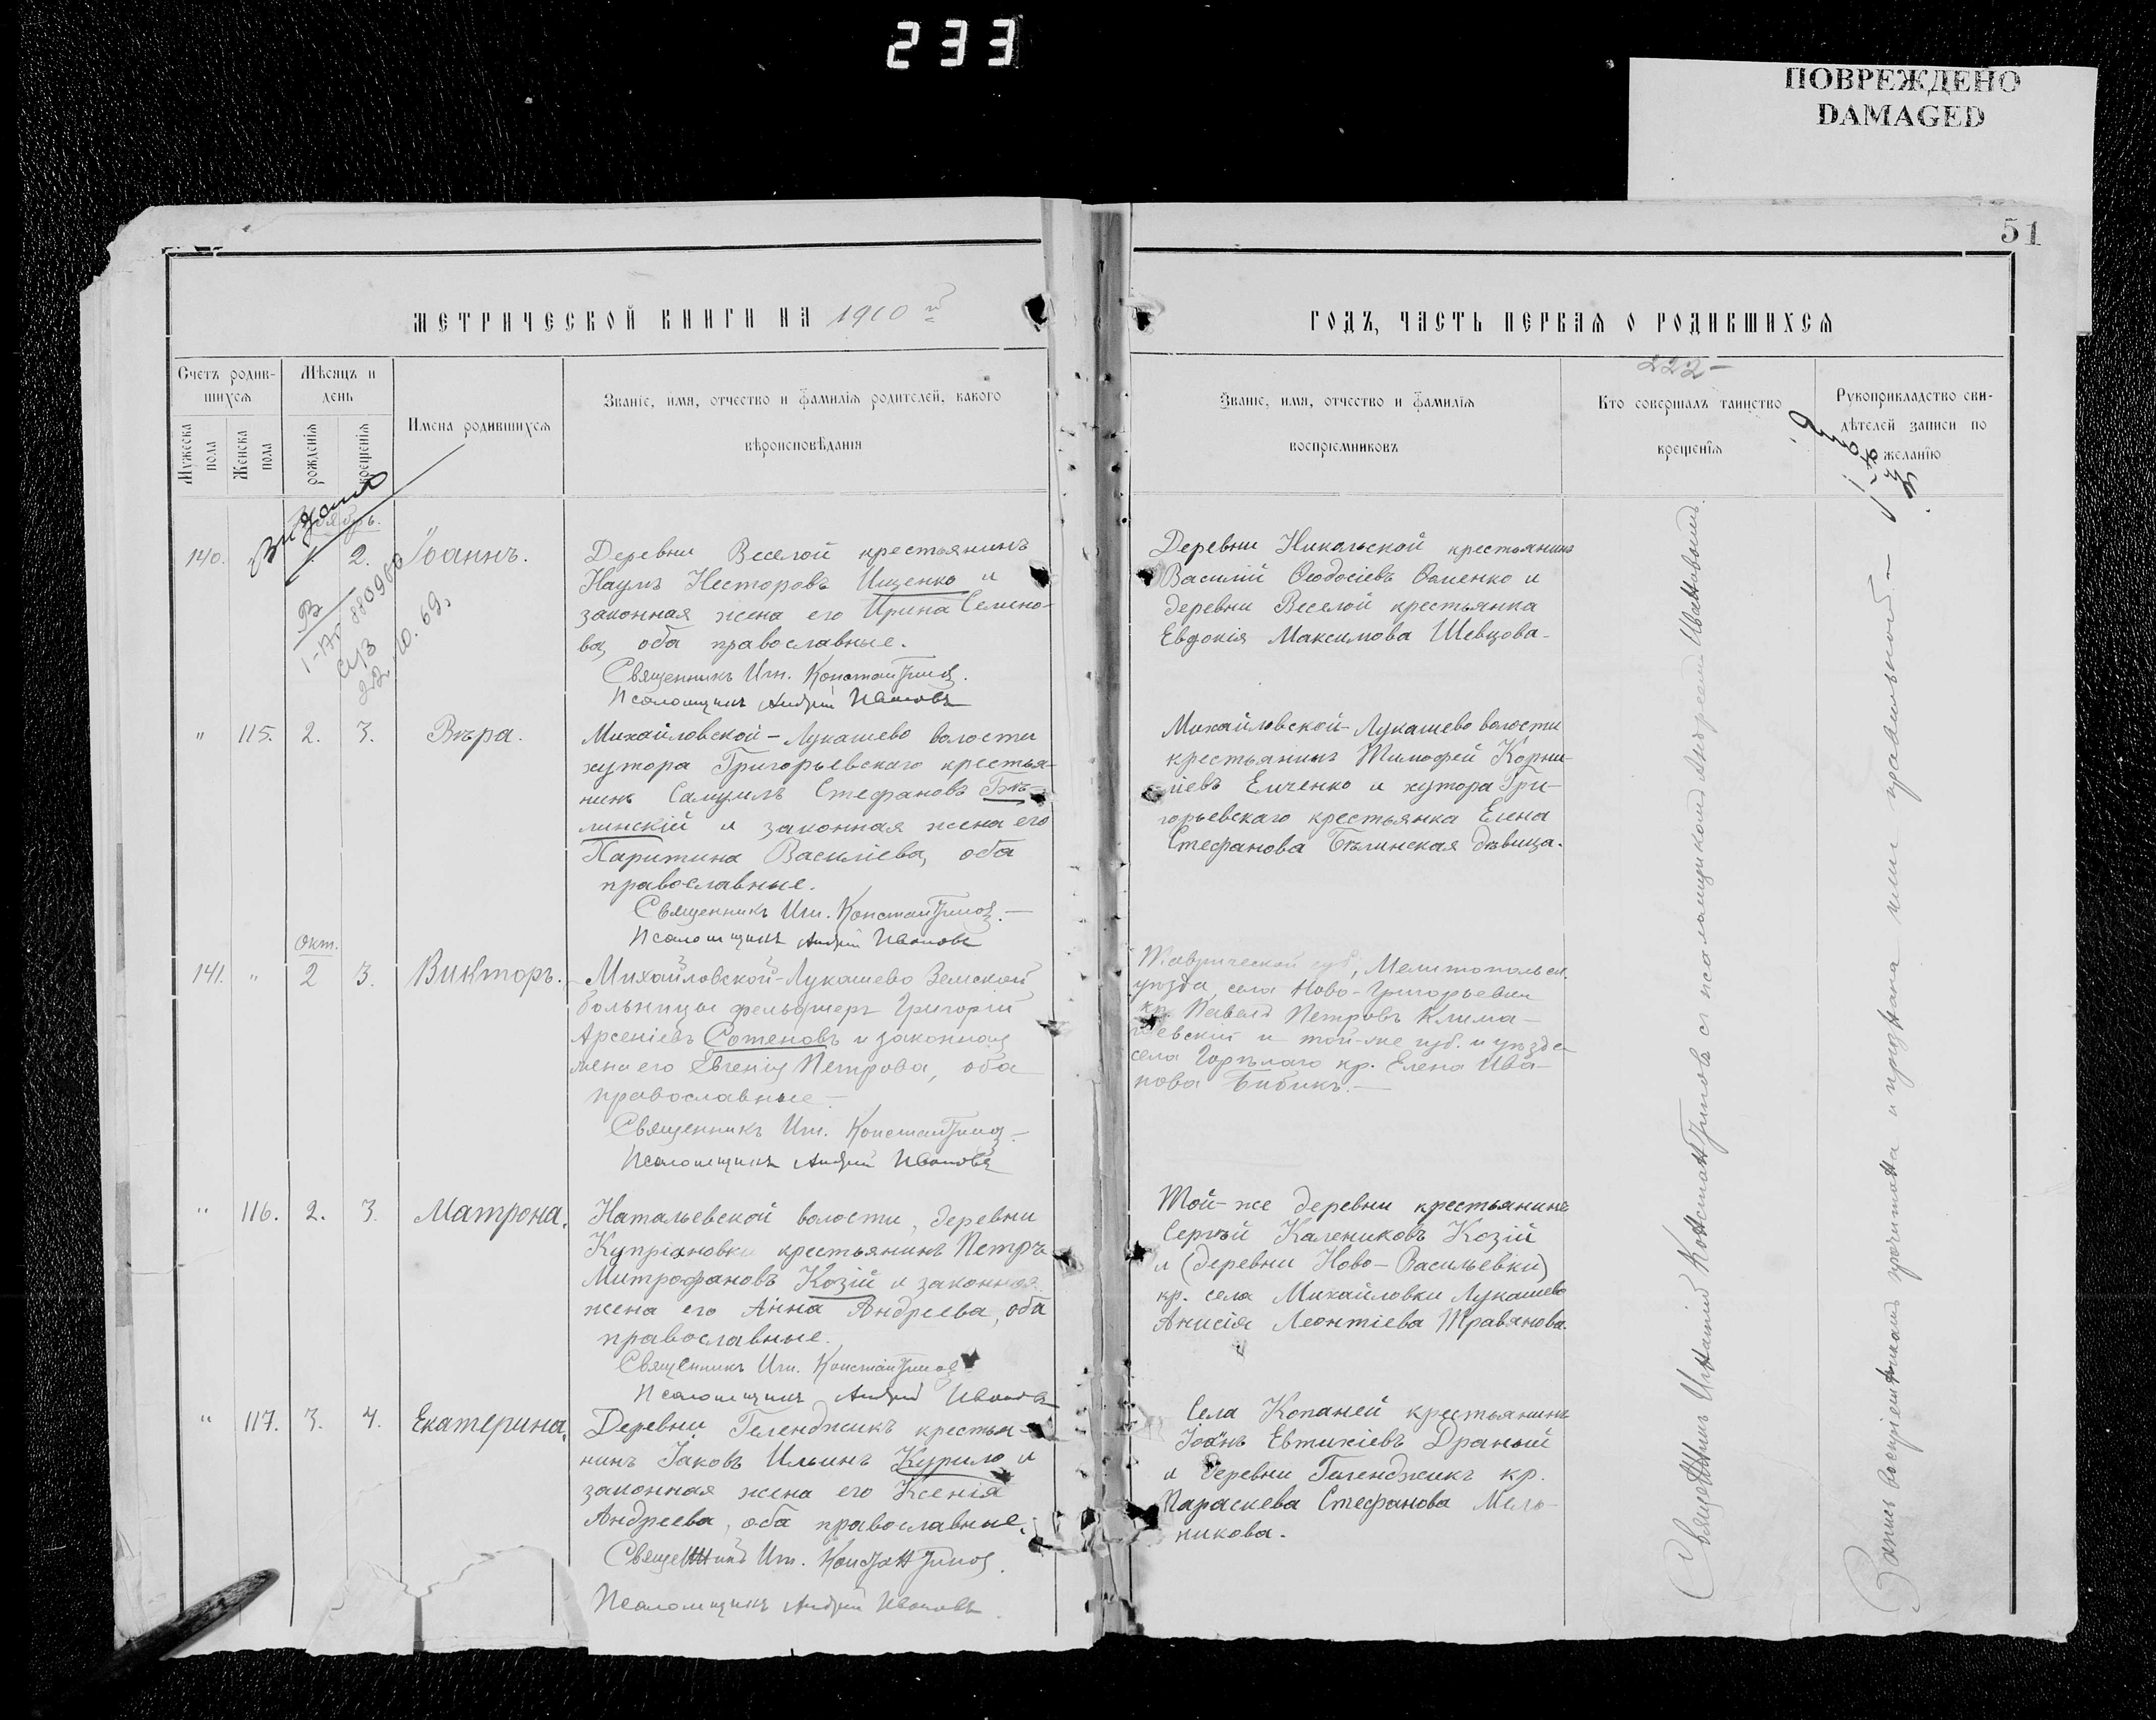 233
ПОВРЕЖДЕНО
DAMAGED
51
МЕТРИЧЕСКОЙ КНИГИ НА 1910 й
Счетъ родив-
шихся
Мѣсяцъ и
день
Мужеска
пола
Женска
пола
рожденія
крещенія
Имена родившихся
Званіе, имя, отчество и фамилія родителей, какого
вѣроисповѣданія
Ноябрь.
140.
1.
2.
Іоаннъ.
Деревни Веселой крестьянинъ
Наумъ Несторовъ Ищенко и
законная жена его Ирина Семено-
ва, оба православные.
Священникъ Игн. Константинов.
Псаломщикъ Андрей Ивановъ
Выдано
22.10.69.
" 115. 2. 3. Вѣра.
Михайловской-Лукашево волости
хутора Григорьевскаго крестья-
нинъ Самуилъ Стефановъ Бѣ-
линскій и законная жена его
Харитина Василіева, оба
православные.
Священникъ Игн. Константинов.
Псаломщикъ Андрей Ивановъ
Окт.
141. " 2 3. Викторъ.
Михайловской-Лукашево Земской
больницы фельдшеръ Григорій
Арсеніевъ Сотеновъ и законная
жена его Евгенія Петрова, оба
православные.
Священникъ Игн. Константинов.
Псаломщикъ Андрей Ивановъ
" 116. 2. 3. Матрона.
Натальевской волости, деревни
Купріяновки крестьянинъ Петръ
Митрофановъ Козій и законная
жена его Анна Андреева, оба
православные.
Священникъ Игн. Константинов
Псаломщикъ Андрей Ивановъ
" 117. 3. 4. Екатерина.
Деревни Геленджикъ крестья-
нинъ Іаковъ Ильинъ Курило и
законная жена его Ксенія
Андреева, оба православные.
Священникъ Игн. Константинов.
Псаломщикъ Андрей Ивановъ.
ГОДЪ, ЧАСТЬ ПЕРВАЯ О РОДИВШИХСЯ
222-
Званіе, имя, отчество и фамилія
воспріемниковъ
Кто совершалъ таинство
крещенія
Рукоприкладство сви-
дѣтелей записи по
желанію
Деревни Никольской крестьянинъ
Василій Ѳеодосіевъ Ѳоменко и
деревни Веселой крестьянка
Евдокія Максимова Шевцова.
Михайловской-Лукашево волости
крестьянинъ Тимофей Корни-
ліевъ Емченко и хутора Гри-
горьевскаго крестьянка Елена
Стефанова Бѣлинская дѣвица.
Таврической губ, Мелитопольск.
уѣзда, села Ново-Григорьевки
кр. Павелъ Петровъ Клима-
шевскій и той-же губ. и уѣзда
села Горѣлаго кр. Елена Ива-
нова Бибикъ.
Той-же деревни крестьянинъ
Сергѣй Калениковъ Козій
и (деревни Ново-Васильевки)
кр. села Михайловки Лукашево
Анисія Леонтіева Травянова.
Села Копаней крестьянинъ
Іоанъ Евтихіевъ Драный
и деревни Геленджикъ кр.
Параскева Стефанова Мель-
никова.
Священникъ Игнатій Константиновъ съ псаломщикомъ Андреемъ Ивановымъ.
Запись воспріемникамъ прочитана и признана ими правильной.